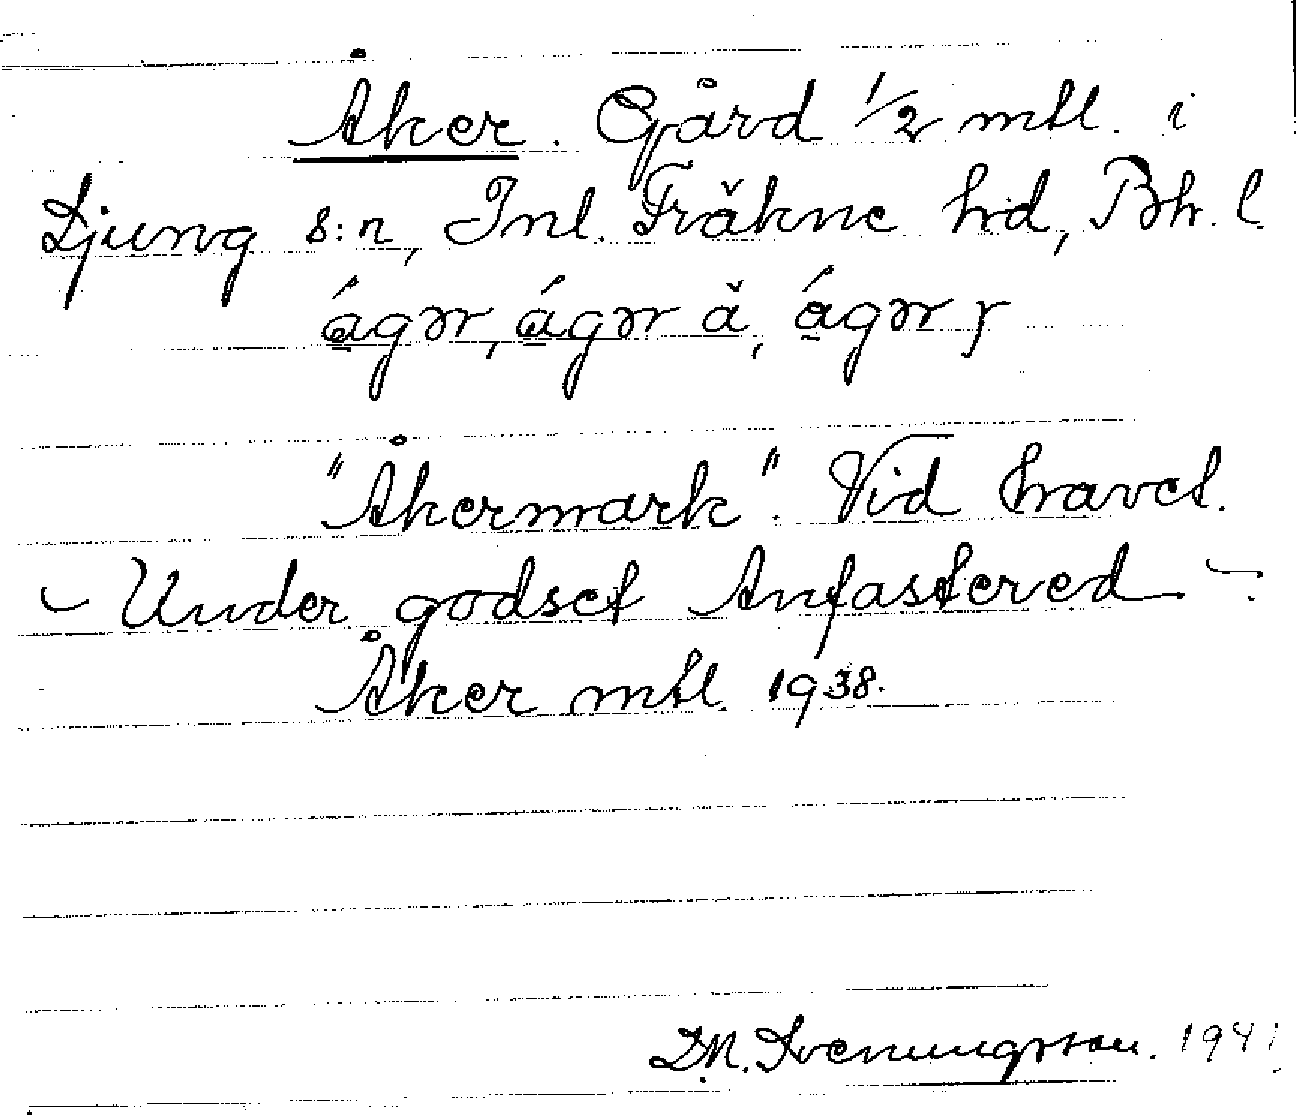 Åker. Gård 1/2 mtl. i
Ljung s:n, Inl. Fräkne hd, Bh. l.
ágər, ágər ä, ágər
"Åkermark". Vid havet.
- Under godset Anfastered -.
Åker mtl. 1938.
D.N. Svenungsson. 1941